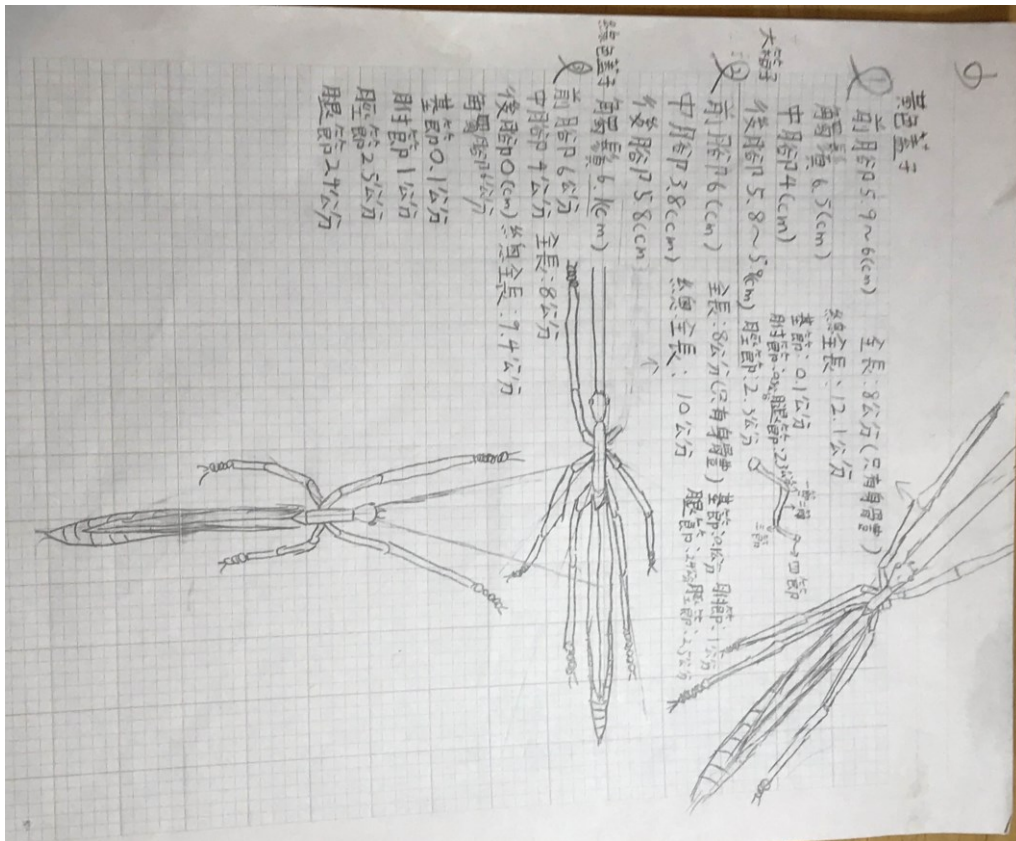 6
黃色蓋子
① 前腳5.9~6(cm) 全長:8公分(只有身體)
觸鬚6.5(cm) 總全長:12.1公分
中腳4(cm) 基節:0.1公分
後腳5.8~5.9(cm) 脛節:2.5公分
大箱子
② 前腳6(cm) 全長:8公分(只有身體) 基節:0.1公分 跗節:1公分
中腳3.8(cm) 總全長:10公分 腿節:2.4公分 脛節:2.5公分
後腳5.8(cm)
觸鬚6.1(cm)
綠色蓋子
③ 前腳6公分
中腳4公分 全長:8公分
後腳0(cm) 總全長:9.4公分
基節0.1公分
跗節1公分
脛節2.5公分
腿節2.4公分